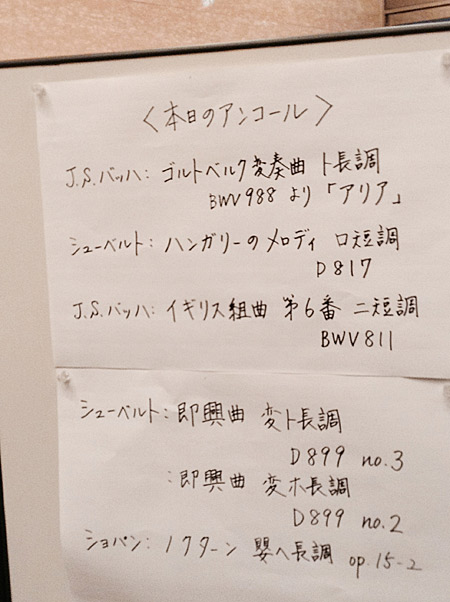 〈本日のアンコール〉
J.S.バッハ: ゴルトベルク変奏曲 ト長調
BWV988 より 「アリア」
シューベルト: ハンガリーのメロディ ロ短調
D817
J.S.バッハ: イギリス組曲 第6番 ニ短調
BWV811
シューベルト: 即興曲 変ト長調
D899 no.3
: 即興曲 変ホ長調
D899 no.2
ショパン: ノクターン 嬰ヘ長調 op.15-2